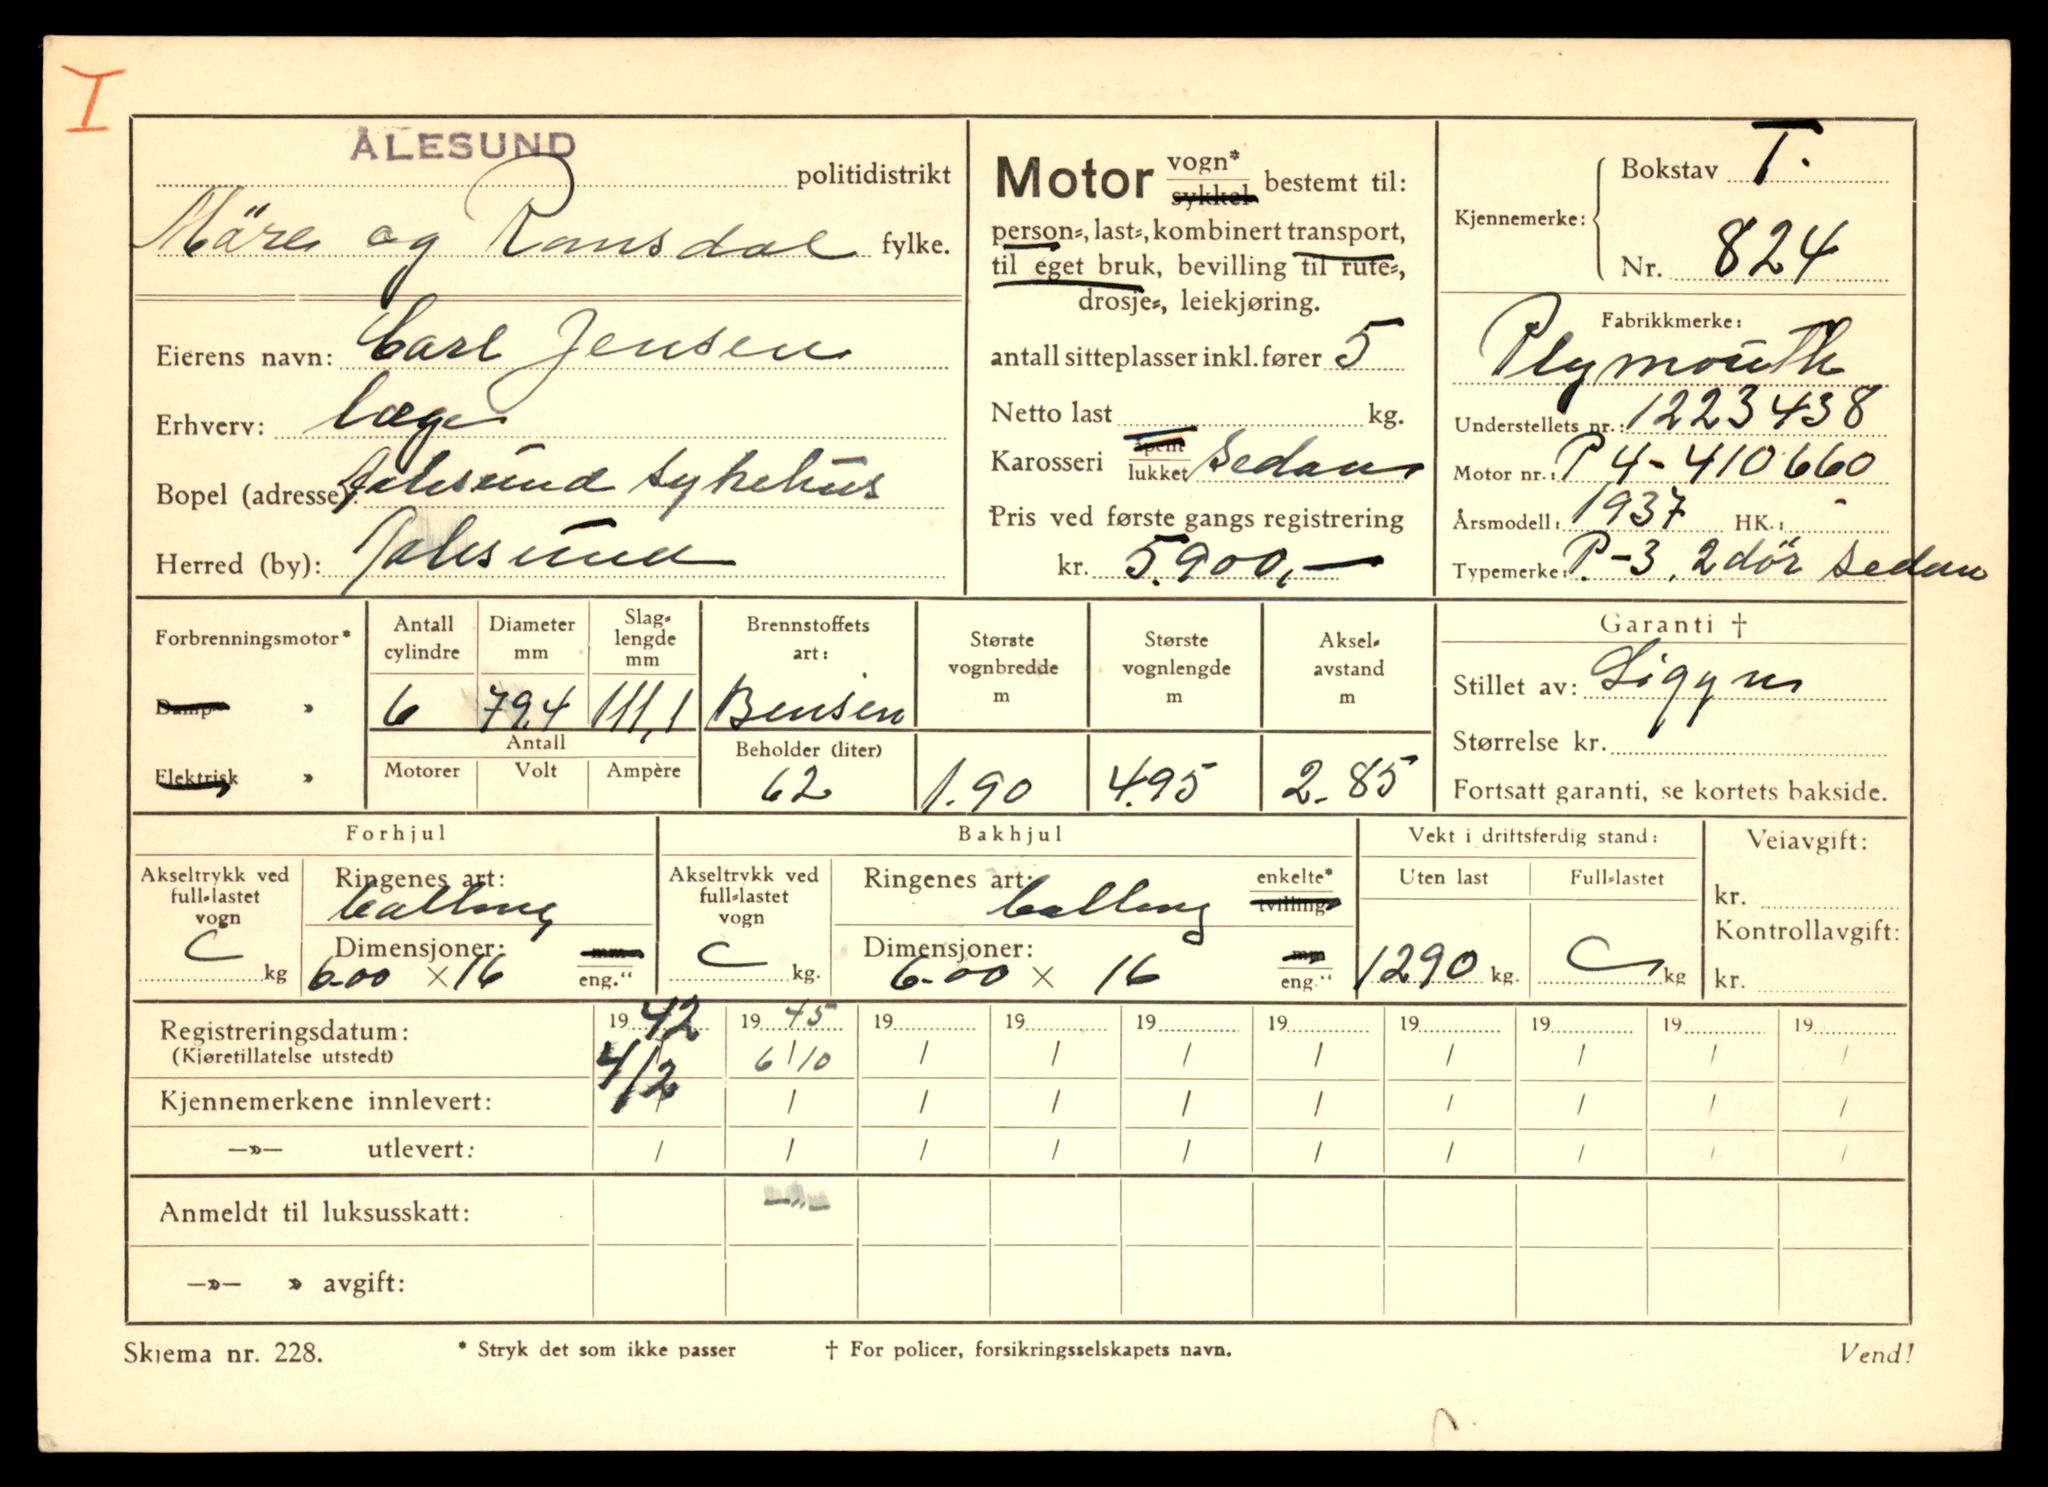 I
ÅLESUND
politidistrikt
Möre og Romsdal fylke.
Eierens navn: Carl Jensen
Erhverv: læge
Bopel (adresse): Aalesund sykehus
Herred (by): Aalesund
Motor vogn* sykkel bestemt til:
person-, last-, kombinert transport,
til eget bruk, bevilling til rute-,
drosje-, leiekjøring.
antall sitteplasser inkl. fører 5
Netto last kg.
Karosseri åpent lukket Sedan
Pris ved første gangs registrering
kr. 5.900,—
Kjennemerke: Bokstav T.
Nr. 824
Fabrikkmerke:
Plymouth
Understellets nr.: 1223438
Motor nr.: P4-410660
Årsmodell: 1937 HK.: -
Typemerke: P-3, 2 dör sedan
Forbrenningsmotor*
Damp- »
Elektrisk »
Antall cylindre
6
Diameter mm
79,4
Slag-lengde mm
111,1
Antall
Motorer Volt Ampère
Brennstoffets art:
Bensin
Beholder (liter)
62
Største vognbredde m
1.90
Største vognlengde m
4.95
Aksel-avstand m
2.85
Garanti †
Stillet av: Sigyn
Størrelse kr.
Fortsatt garanti, se kortets bakside.
Forhjul
Akseltrykk ved full-lastet vogn
kg
Ringenes art:
ballong
Dimensjoner: mm
6.00 × 16 eng."
Bakhjul
Akseltrykk ved full-lastet vogn
kg.
Ringenes art: ballong enkelte* tvilling-
Dimensjoner: mm
6.00 × 16 eng."
Vekt i driftsferdig stand:
Uten last Full-lastet
1290 kg. kg
Veiavgift:
kr.
Kontrollavgift:
kr.
Registreringsdatum: 1942 1945 19 19 19 19 19 19 19 19
(Kjøretillatelse utstedt) 4/2 6/10 / / / / / / / /
Kjennemerkene innlevert: / / / / / / / / / /
—»— utlevert: / / / / / / / / / /
Anmeldt til luksusskatt: —"—
—»— » avgift:
Skjema nr. 228.
* Stryk det som ikke passer
† For policer, forsikringsselskapets navn.
Vend!